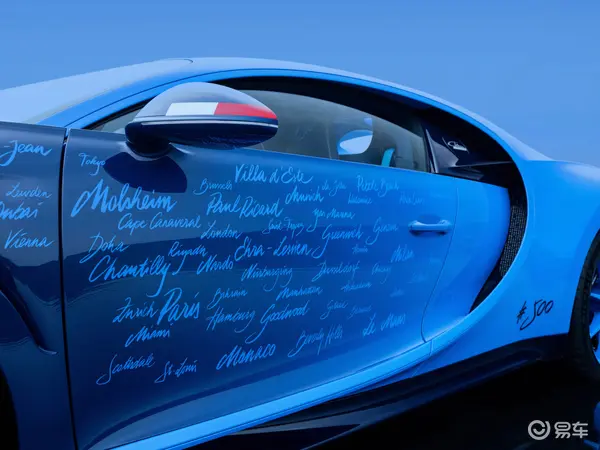 Jean
Tokyo
Dubai
Vienna
Molsheim
Brussels
Villa d'Este
Pebble Beach
Cape Canaveral
Paul Ricard
Munich
London
Saint-Tropez
Greenwich
Geneva
Doha
Riyadh
Ehra-Lessien
Milan
Chantilly
Nardò
Nürburgring
Düsseldorf
Zurich
Paris
Bahrain
Manhattan
Miami
Hamburg
Goodwood
Scottsdale
St. Louis
Monaco
Beverly Hills
Le Mans
#500
易车